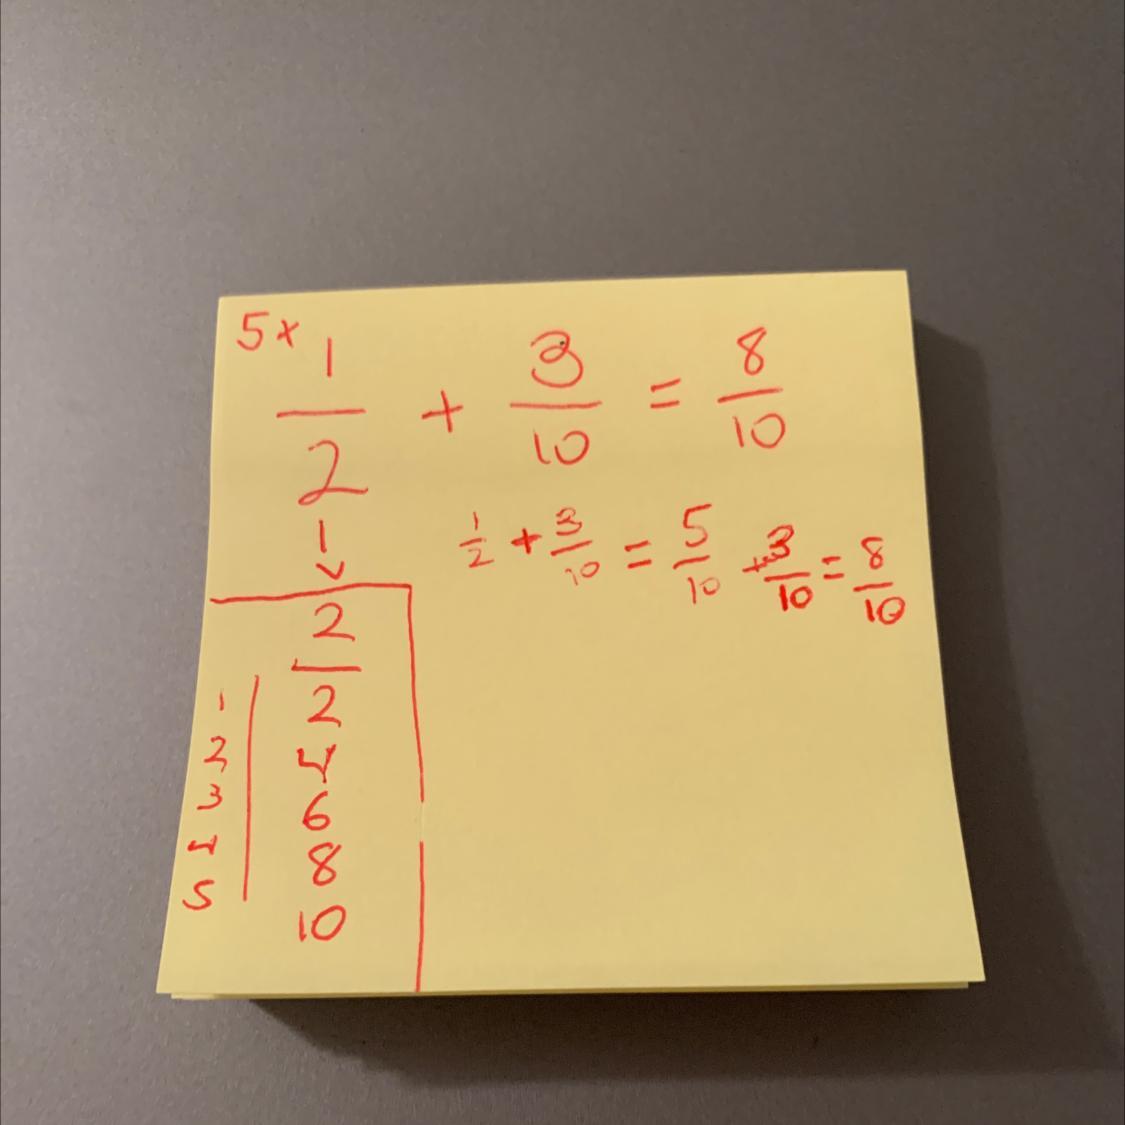 5x
1/2 + 3/10 = 8/10
1/2 + 3/10 = 5/10 + 3/10 = 8/10
2
1 2
2 4
3 6
4 8
5 10